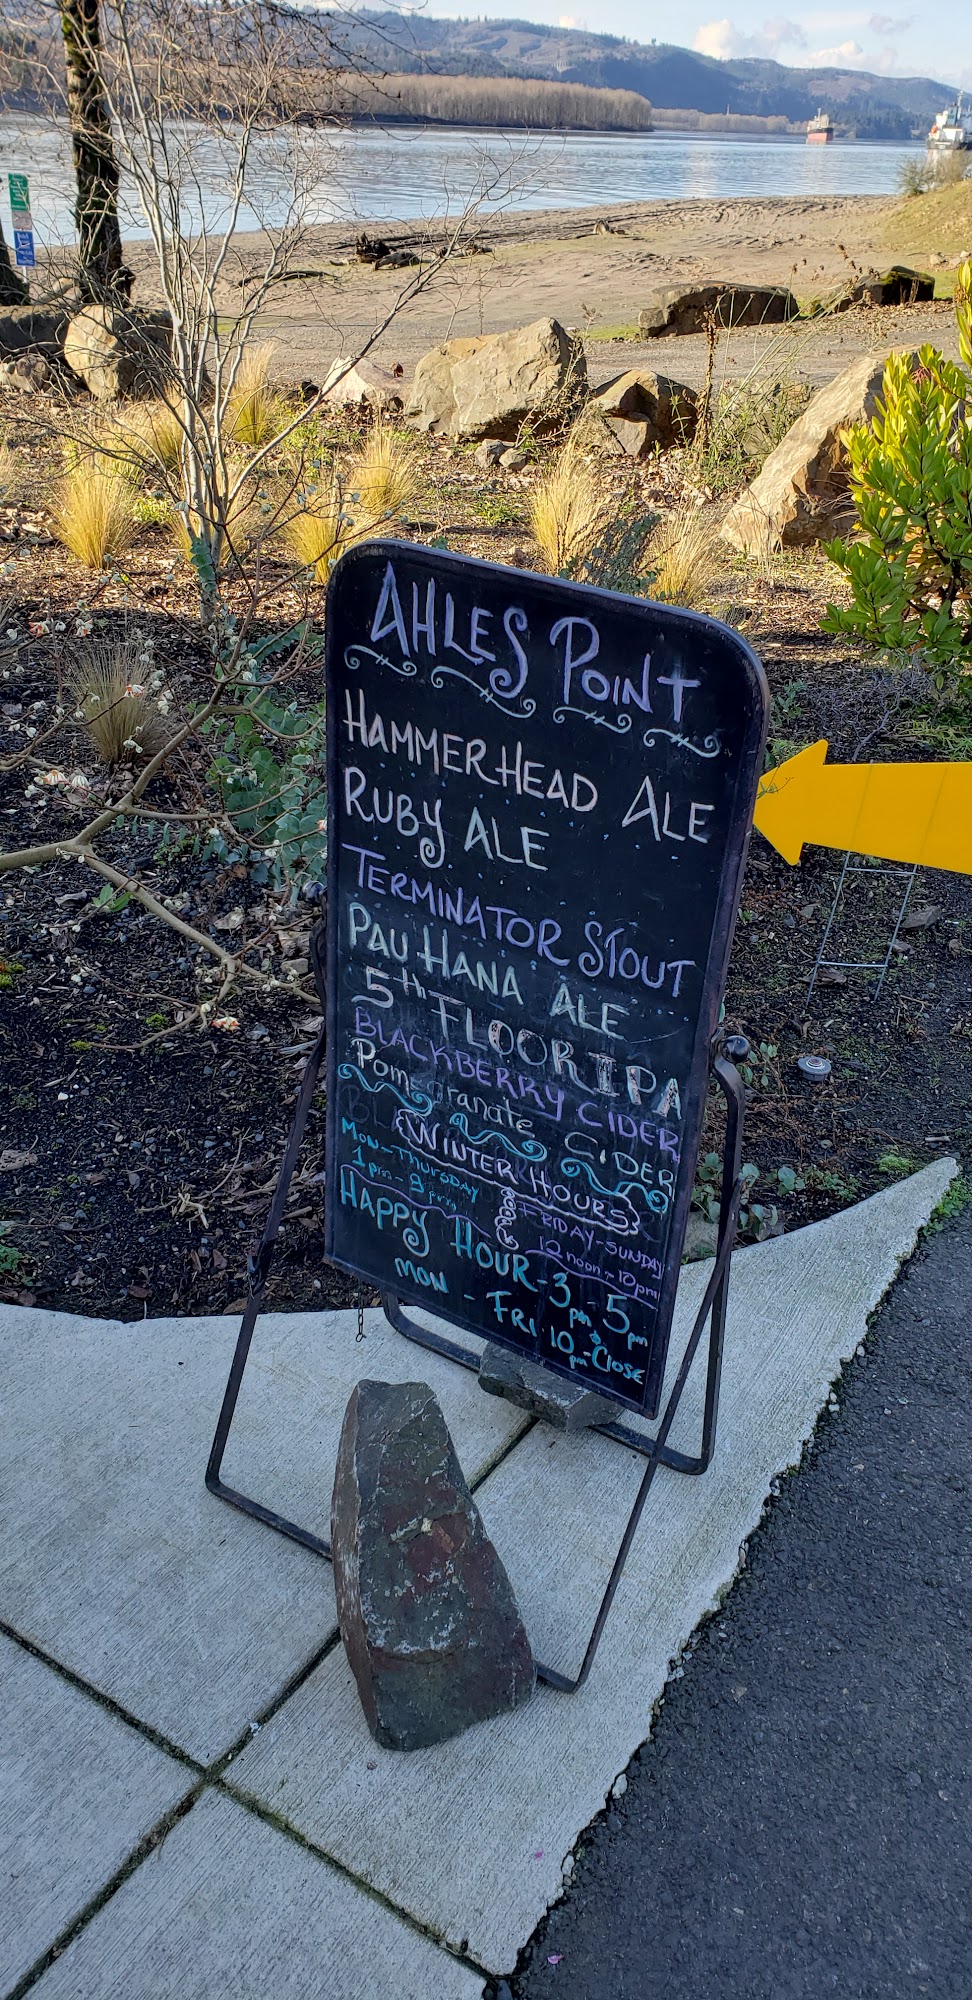 AHLES POINT
HAMMERHEAD ALE
RUBY ALE
TERMINATOR STOUT
PAU HANA ALE
5th FLOOR IPA
BLACKBERRY CIDER
Pomegranate CiDER
WINTER HOURS
MON - THURSDAY
1pm - 9pm
FRIDAY - SUNDAY
12 noon - 10pm
HAPPY HOUR - 3pm - 5pm
MON - FRI 10pm - CLOSE